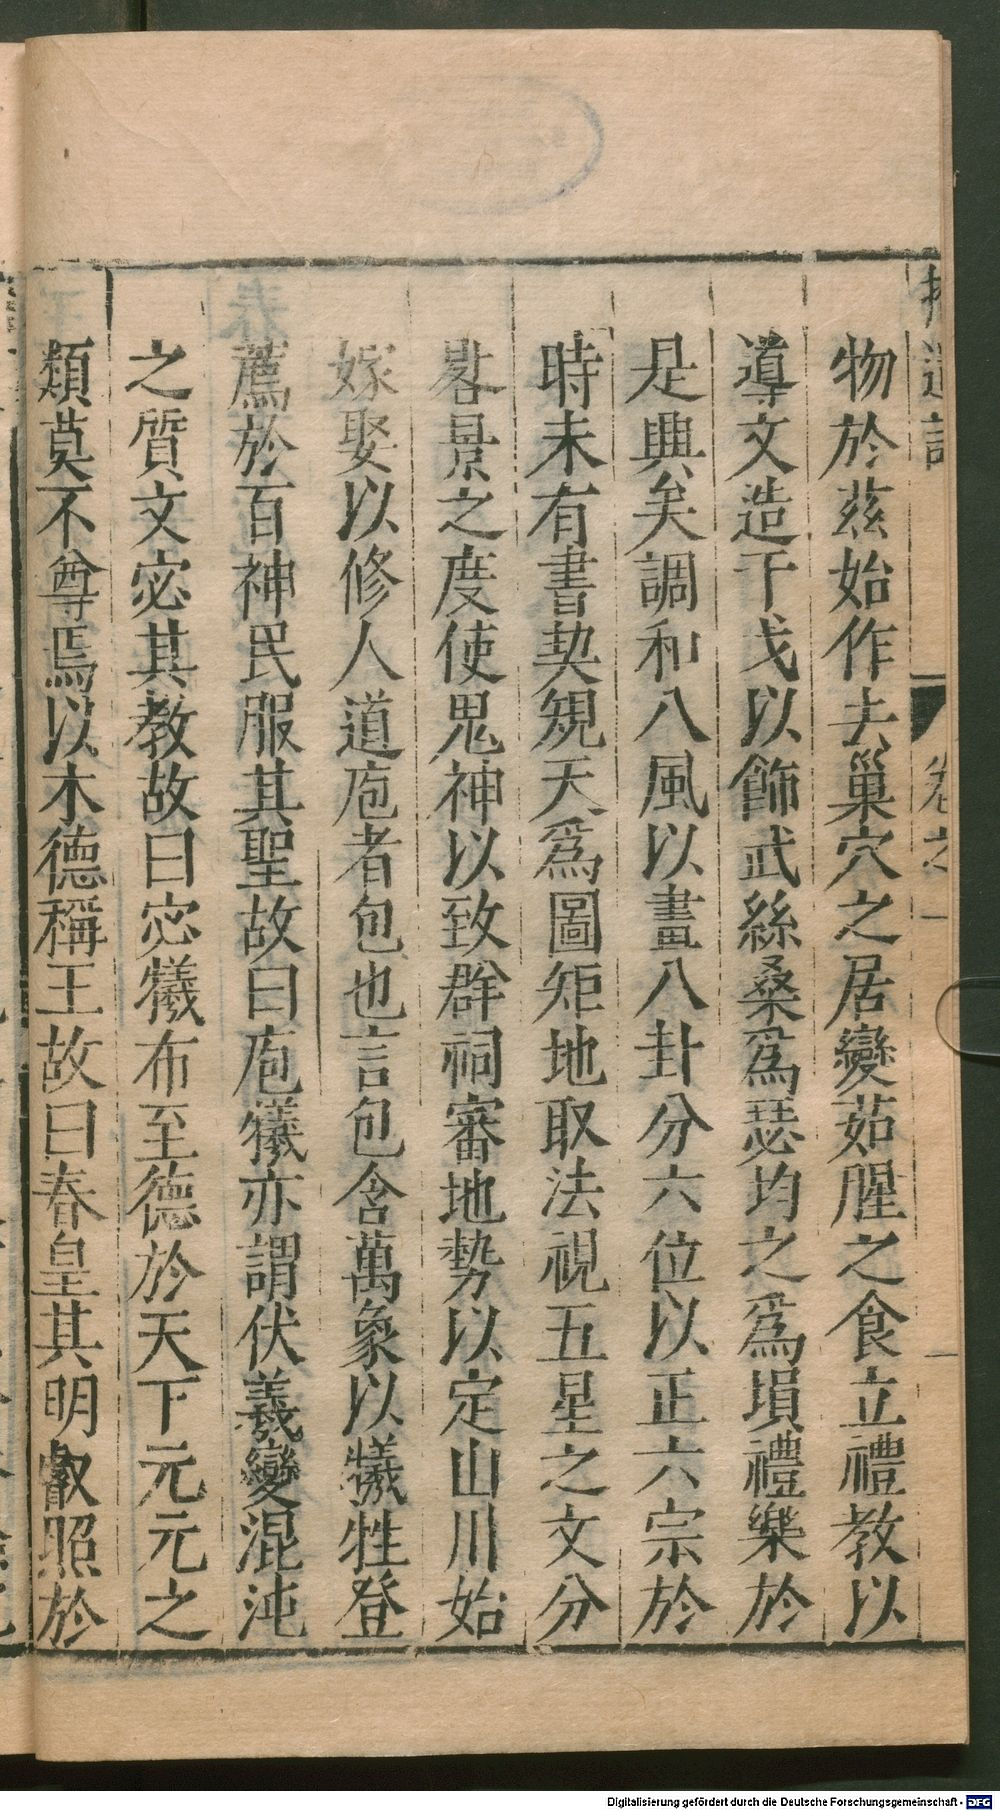 拾遺記
卷之一
一
物於茲始作去巢穴之居變茹腥之食立禮教以
導文造干戈以飾武絲桑爲瑟均之爲塤禮樂於
是興矣調和八風以畫八卦分六位以正六宗於
時未有書契規天爲圖矩地取法視五星之文分
晷景之度使鬼神以致群祠審地勢以定山川始
嫁娶以修人道庖者包也言包含萬象以犧牲登
薦於百神民服其聖故曰庖犧亦謂伏羲變混沌
之質文宓其教故曰宓犧布至德於天下元元之
類莫不尊焉以木德稱王故曰春皇其明叡照於
Digitalisierung gefördert durch die Deutsche Forschungsgemeinschaft - DFG